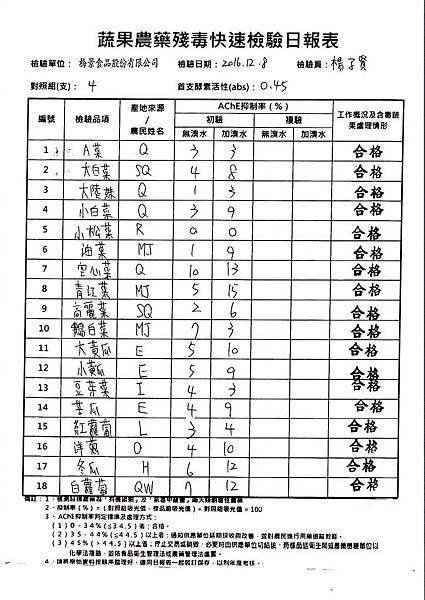 蔬果農藥殘毒快速檢驗日報表
檢驗單位： 梅景食品股份有限公司 檢驗日期：2016.12.8 檢驗員：楊子賢
對照組(支)： 4 首支酵素活性(abs)：0.45
編號 檢驗品項 產地來源/農民姓名 AChE抑制率(%) 工作概況及含毒蔬果處理情形
初驗 複驗
無溴水 加溴水 無溴水 加溴水
1 A菜 Q 3 3 合格
2 大白菜 SQ 4 8 合格
3 大陸妹 Q 1 3 合格
4 小白菜 Q 3 9 合格
5 小松菜 R 0 0 合格
6 油菜 MJ 1 9 合格
7 空心菜 Q 10 13 合格
8 青江菜 MJ 5 15 合格
9 高麗菜 SQ 2 6 合格
10 鵝白菜 MJ 7 3 合格
11 大黃瓜 E 5 10 合格
12 小黃瓜 E 5 9 合格
13 豆芽菜 I 4 3 合格
14 苦瓜 E 4 9 合格
15 紅蘿蔔 L 3 4 合格
16 洋蔥 O 4 10 合格
17 冬瓜 H 6 12 合格
18 白蘿蔔 QW 7 12 合格
2．抑制率(%)＝(對照組吸光值－樣品組吸光值)÷對照組吸光值×100
3．AChE抑制判定標準及處理方式：
(1)0－34%(≦34.5)者：合格。
(2)35－44%(≦44.5)以上者：通知供應單位延期採收與改善，並對農民進行用藥追蹤教育。
(3)45%(>44.5)以上者：停止交易或銷毀，必要時由供應單位切結後，將樣品送衛生局或農藥檢驗單位以
化學法複驗，並依食品衛生管理法或農藥管理法處置。